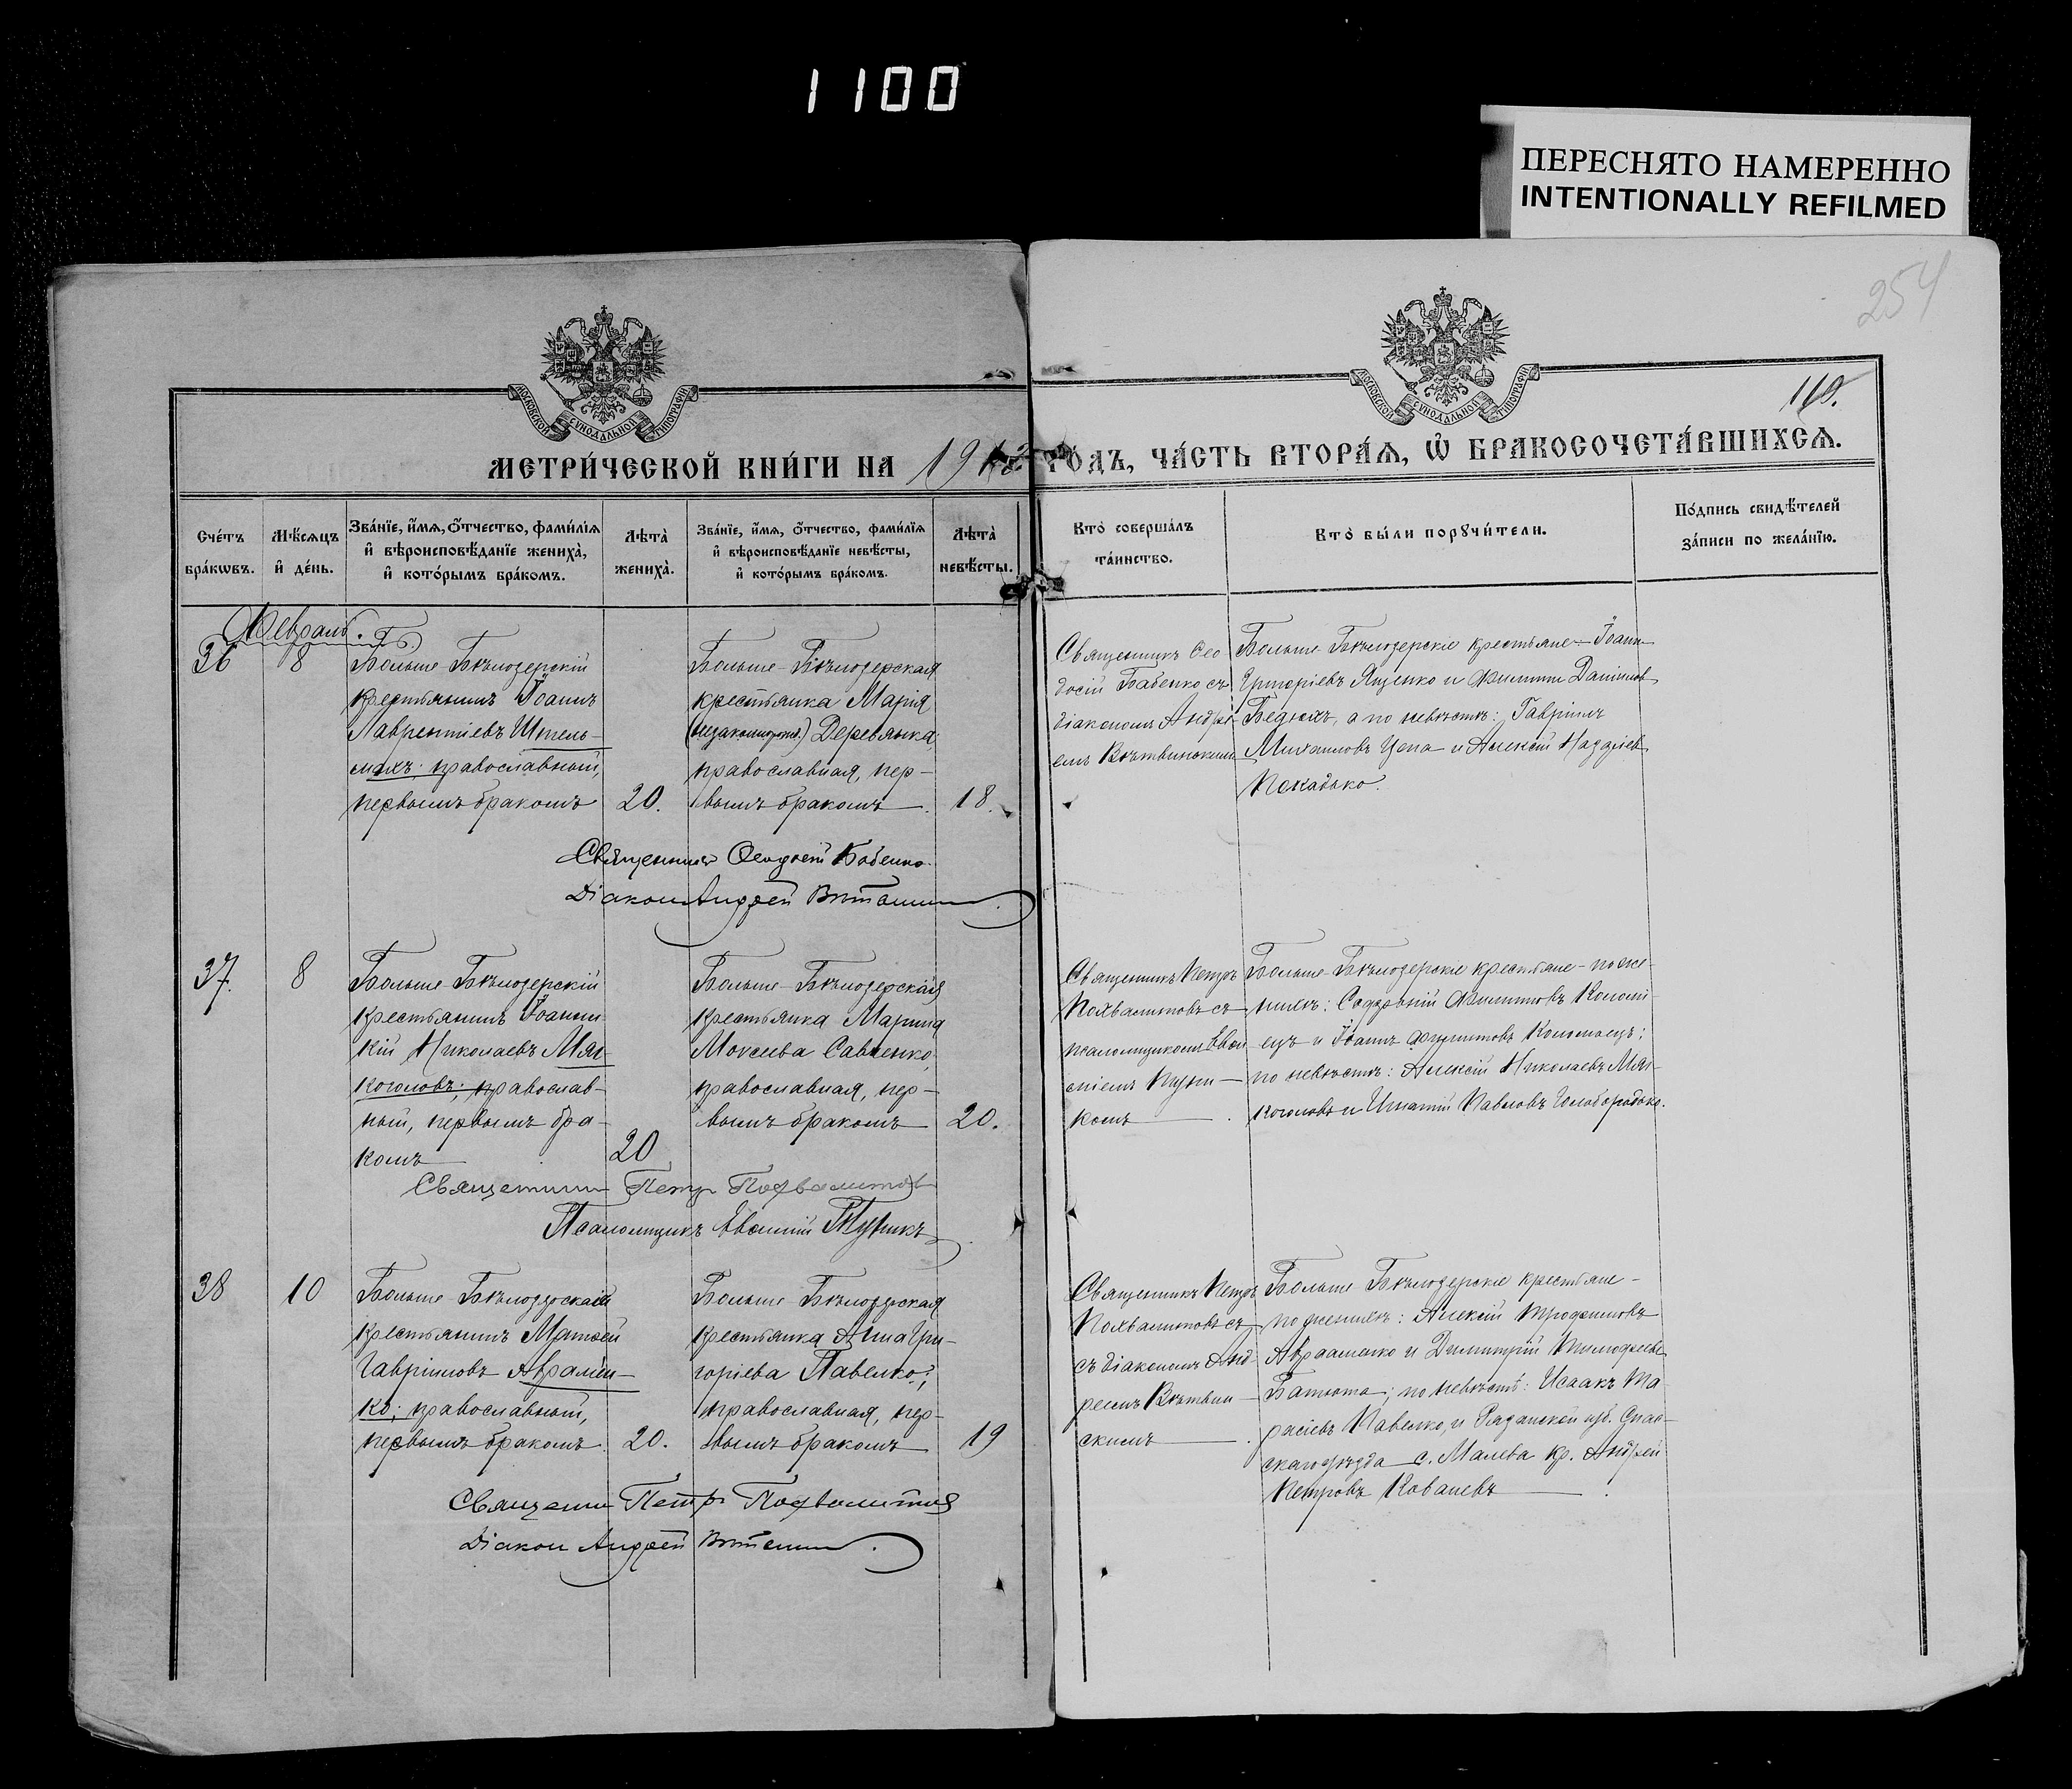 1100
ПЕРЕСНЯТО НАМЕРЕННО
INTENTIONALLY REFILMED
254
МОСКОВСКОЙ СѴНОДАЛЬНОЙ ТИПОГРАФІИ
МОСКОВСКОЙ СѴНОДАЛЬНОЙ ТИПОГРАФІИ
МЕТРИ́ЧЕСКОЙ КНИ́ГИ НА 191
ГО́ДЪ, ЧА́СТЬ ВТОРА́Я, Ѡ҆ БРАКОСОЧЕТА́ВШИХСЯ.
Сче́тъ
бра́кѡвъ.
Мѣ́сяцъ
и҆ де́нь.
Зва́нїе, и҆́мя, ѻ҆́тчество, фами́лїя
и҆ вѣроисповѣ́данїе жениха̀,
и҆ кото́рымъ бра́комъ.
Лѣ́та̀
жениха̀.
Зва́нїе, и҆́мя, ѻ҆́тчество, фами́лїя
и҆ вѣроисповѣ́данїе невѣ́сты,
и҆ кото́рымъ бра́комъ.
Лѣ́та̀
невѣ́сты.
Кто̀ соверша́лъ
та́инство.
Кто̀ бы́ли порꙋчи́тели.
По́дпись свидѣ́телей
за́писи по жела́нїю.
Февраль.
36
8
Больше-Бѣлозерскій
крестьянинъ Іоаннъ
Лаврентіевъ Штель-
махъ; православный,
первымъ бракомъ
20.
Больше-Бѣлозерская
крестьянка Марія
(незаконнорожд.) Деревянка
православная, пер-
вымъ бракомъ
18.
Священникъ Ѳео
досій Бабенко съ
діакономъ Андре-
емъ Вѣтвинскимъ
Больше-Бѣлозерскіе крестьяне - Іоаннъ
Григоріевъ Яценко и Филиппъ Даніиловъ
а по невѣстѣ: Гавріилъ
Михаиловъ Цепа и Алексій

Священникъ Ѳеодосій Бабенко.
Діаконъ Андрей
37.
8
Больше-Бѣлозерскій
крестьянинъ Іоанни-
кій Николаевъ Мяг-
коголовъ; православ-
ный, первымъ бра-
комъ
20
Больше-Бѣлозерская
крестьянка Марина
Моисеева Савченко,
православная, пер-
вымъ бракомъ
20.
Священникъ Петръ
Похвалитовъ съ
псаломщикомъ Евѳи
міемъ
комъ
Больше-Бѣлозерскіе крестьяне - по же-
нихѣ: Софроній Филипповъ Коломі-
ецъ и Іоаннъ Филипповъ Коломіецъ;
по невѣстѣ: Алексій Николаевъ Мяг-
коголовъ и Игнатій Павловъ Голобородько.
Священникъ Петръ Похвалитовъ
Псаломщикъ Евѳимій
38
10
Больше Бѣлозерскій
крестьянинъ Матѳей
Гавріиловъ Авраамен-
ко; православный,
первымъ бракомъ
20.
Больше Бѣлозерская
крестьянка Анна Гри-
горіева Павелко;
православная, пер-
вымъ бракомъ
19
Священникъ Петръ
Похвалитовъ съ
съ діакономъ Анд-
реемъ Вѣтвин-
скимъ
Больше Бѣлозерскіе крестьяне -
по женихѣ: Алексій Трофимовъ
Авраменко и Димитрій Тимоѳеевъ
Батюта; по невѣстѣ: Исаакъ Та-
расіевъ Павелко, и Рязанской губ. Спас-
скаго уѣзда с. кр. Андрей
Петровъ Ковалевъ
Священникъ Петръ Похвалитовъ
Діаконъ Андрей